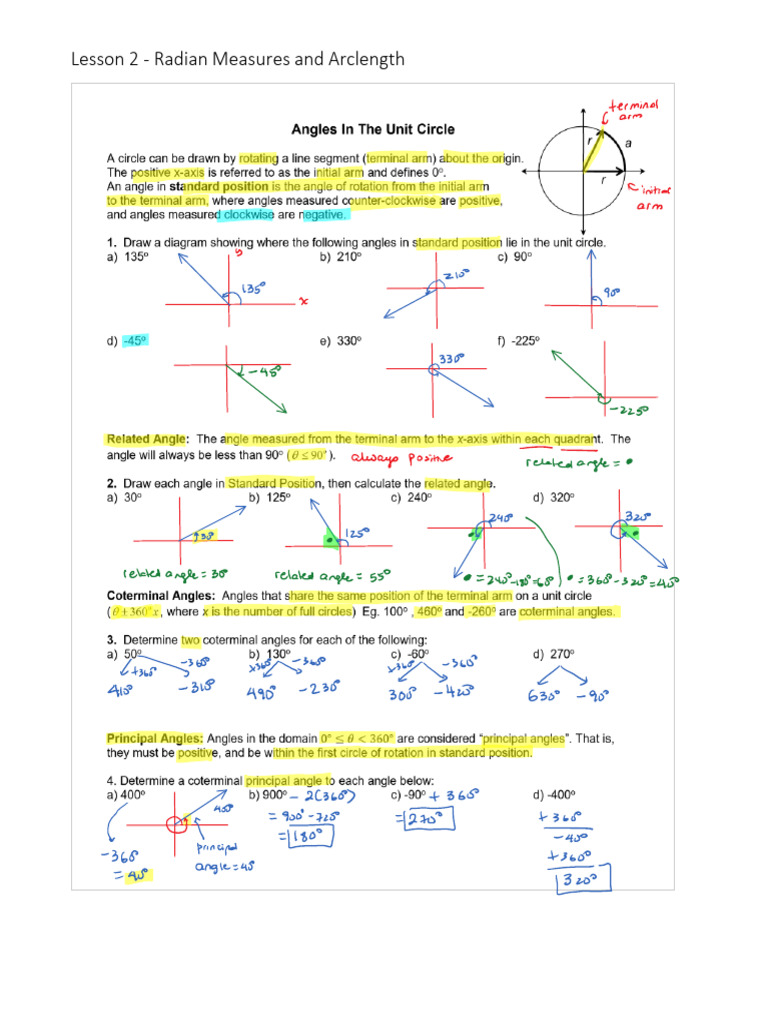 Lesson 2 - Radian Measures and Arclength
terminal
arm
Angles In The Unit Circle
r
a
A circle can be drawn by rotating a line segment (terminal arm) about the origin.
The positive x-axis is referred to as the initial arm and defines 0°.
r
An angle in standard position is the angle of rotation from the initial arm
to the terminal arm, where angles measured counter-clockwise are positive,
and angles measured clockwise are negative.
initial
arm
1. Draw a diagram showing where the following angles in standard position lie in the unit circle.
a) 135° b) 210° c) 90°
135° x 210° 90°
d) -45° e) 330° f) -225°
-45° 330° -225°
Related Angle: The angle measured from the terminal arm to the x-axis within each quadrant. The
angle will always be less than 90° (θ ≤ 90°). always positive
related angle = •
2. Draw each angle in Standard Position, then calculate the related angle.
a) 30° b) 125° c) 240° d) 320°
30° 125° 240° 320°
related angle = 30° related angle = 55° • = 240° - 180° = 60° • = 360° - 320° = 40°
Coterminal Angles: Angles that share the same position of the terminal arm on a unit circle
(θ ± 360°x, where x is the number of full circles) Eg. 100° , 460° and -260° are coterminal angles.
3. Determine two coterminal angles for each of the following:
a) 50° b) 130° c) -60° d) 270°
+360° -360° +360° -360° +360° -360°
410° -310° 490° -230° 300° -420° 630° -90°
Principal Angles: Angles in the domain 0° ≤ θ < 360° are considered “principal angles”. That is,
they must be positive, and be within the first circle of rotation in standard position.
4. Determine a coterminal principal angle to each angle below:
a) 400° b) 900° - 2(360°) c) -90° + 360° d) -400°
= 900° - 720° = 270° + 360°
= 180° -40°
principal
angle = 40°
-360°
= 40°
+360°
320°